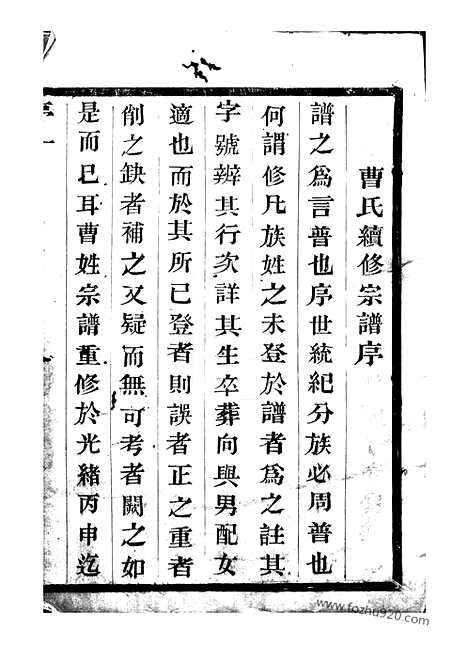 曹氏續修宗譜序
譜之為言普也序世統紀分族必周普也
何謂修凡族姓之未登於譜者為之註其
字號辦其行次詳其生卒葬向與男配女
適也而於其所已登者則誤者正之重者
削之缺者補之又疑而無可考者闕之如
是而已耳曹姓宗譜重修於光緒丙申迄
序一
www.fozhu920.com